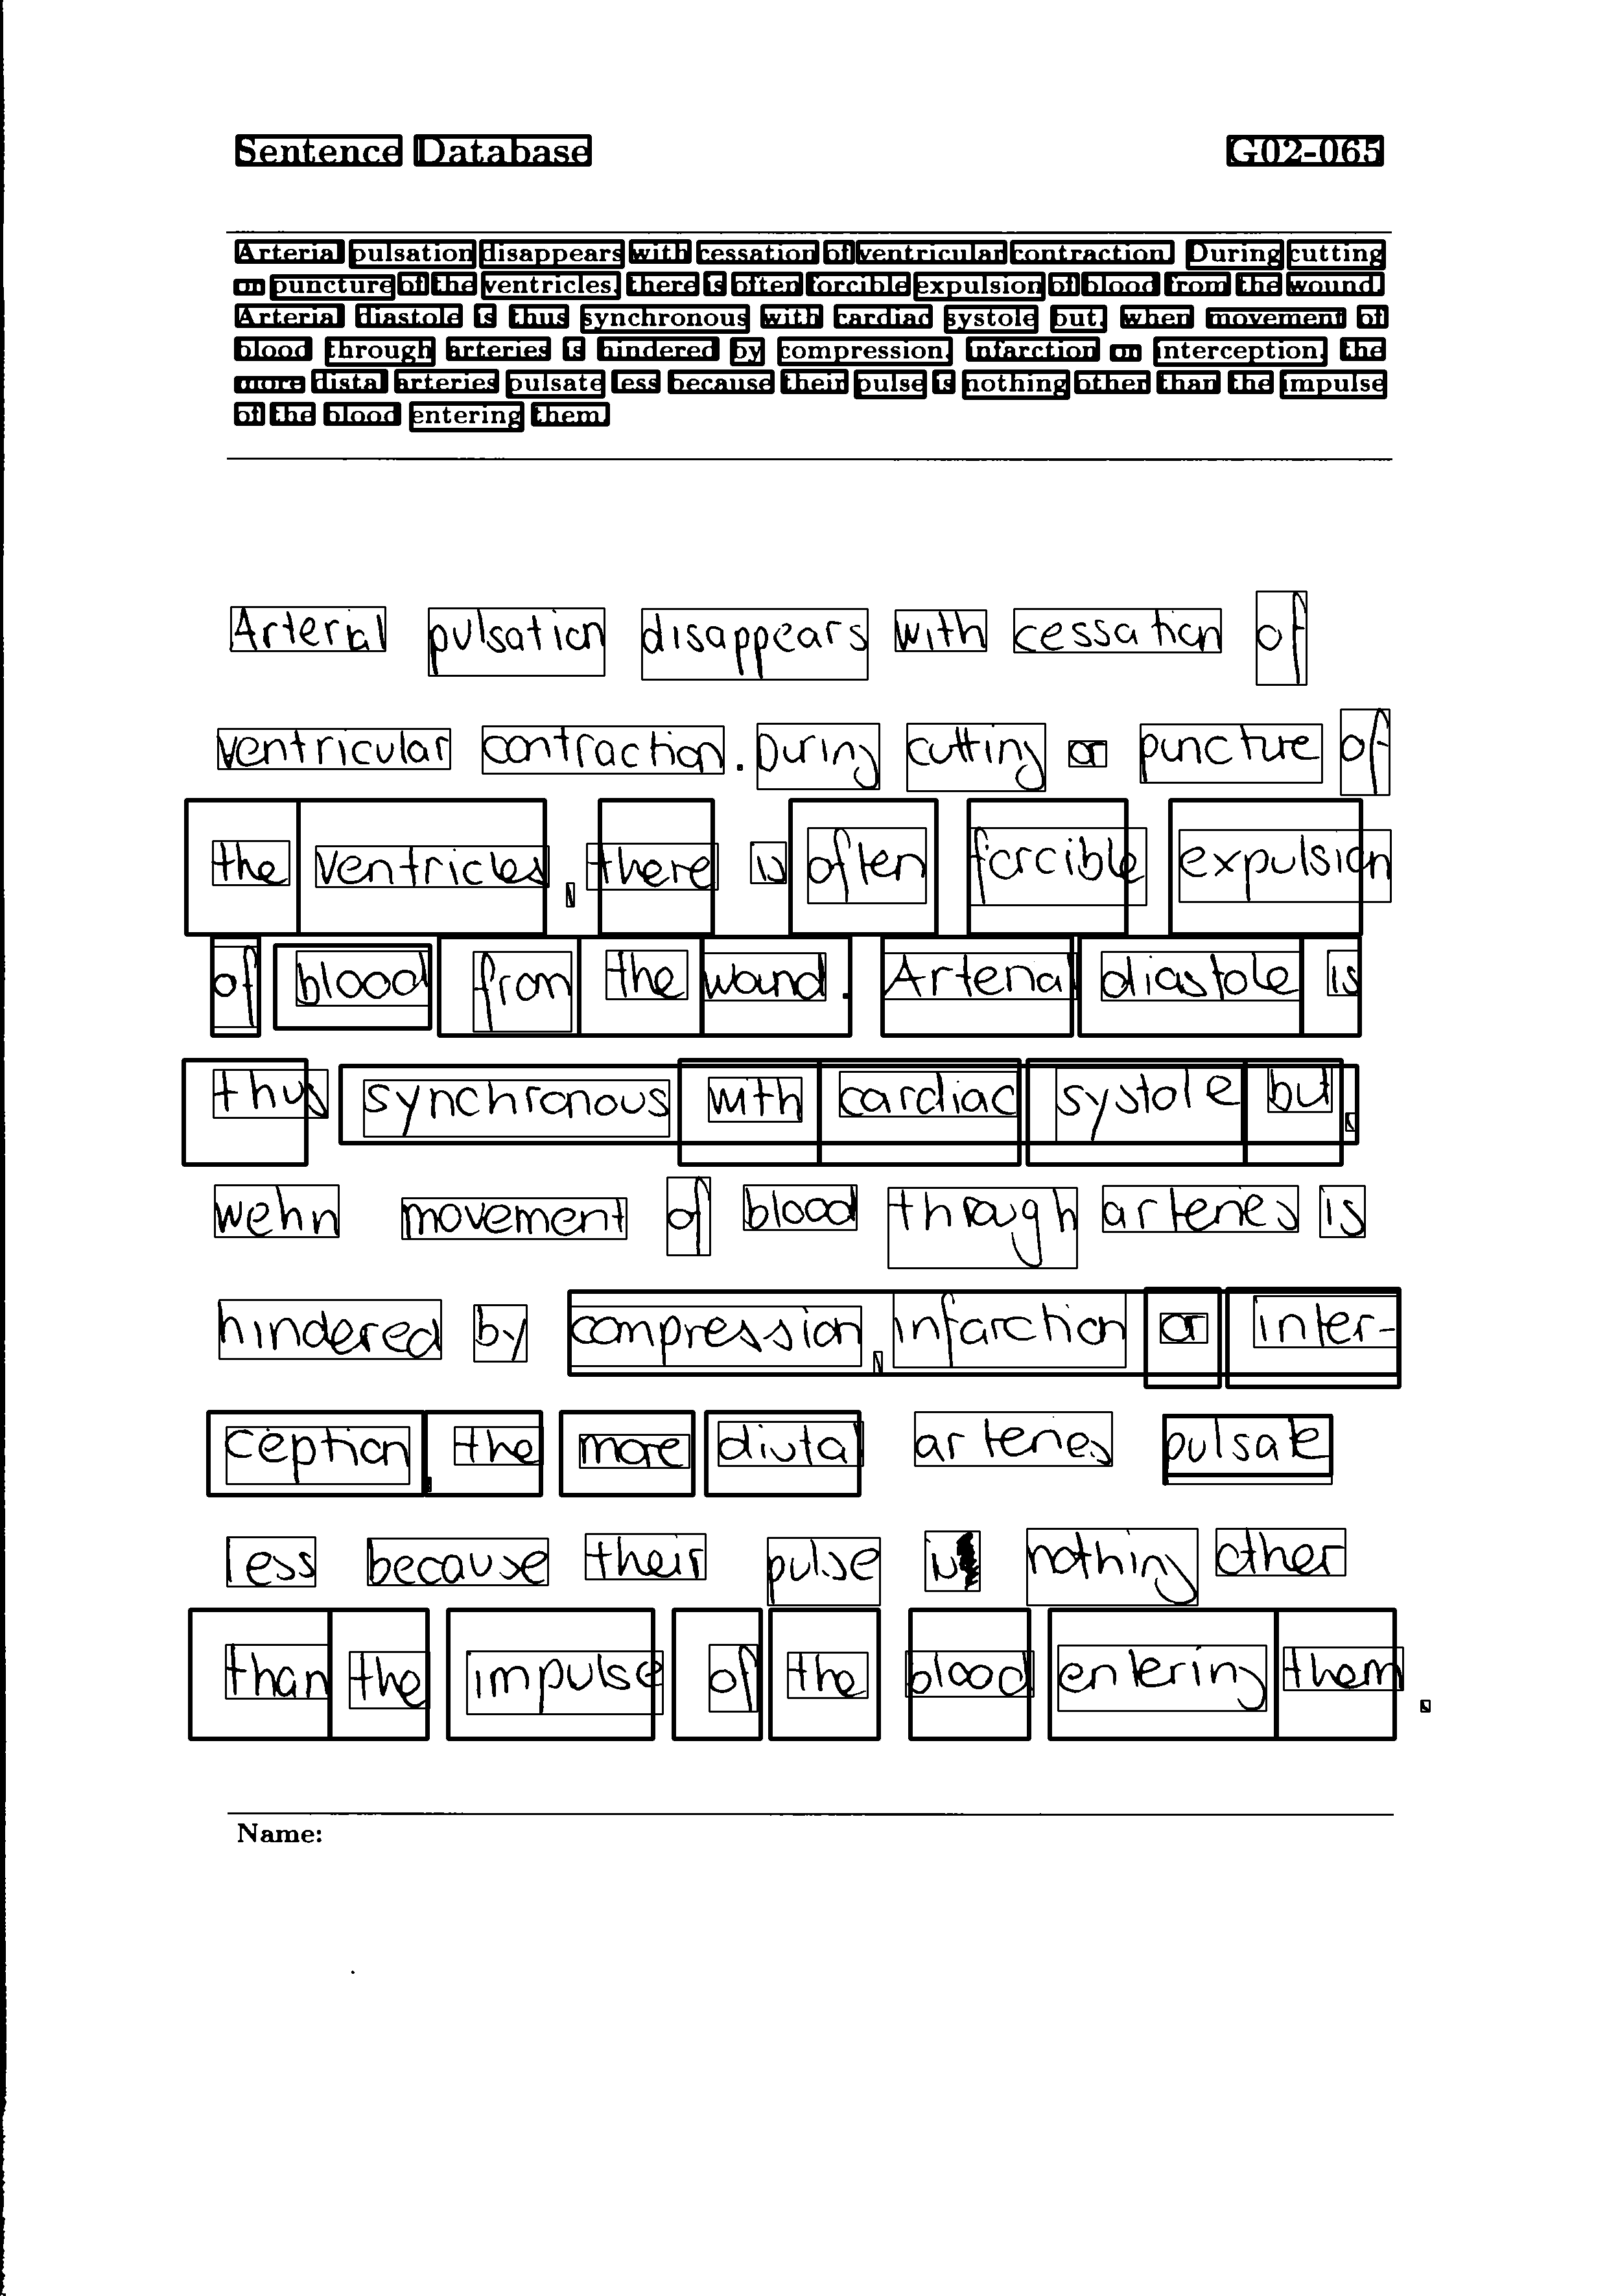 Sentence Database G02-065
Arterial pulsation disappears with cessation of ventricular contraction. During cutting
or puncture of the ventricles, there is often forcible expulsion of blood from the wound.
Arterial diastole is thus synchronous with cardiac systole but, when movement of
blood through arteries is hindered by compression, infarction or interception, the
more distal arteries pulsate less because their pulse is nothing other than the impulse
of the blood entering them.
Arterial pulsation disappears with cessation of
ventricular contraction. During cutting or puncture of
the ventricles, there is often forcible expulsion
of blood from the wound. Arterial diastole is
thus synchronous with cardiac systole but,
wehn movement of blood through arteries is
hindered by compression, infarction or inter-
ception, the more distal arteries pulsate
less because their pulse is nothing other
than the impulse of the blood entering them.
Name: